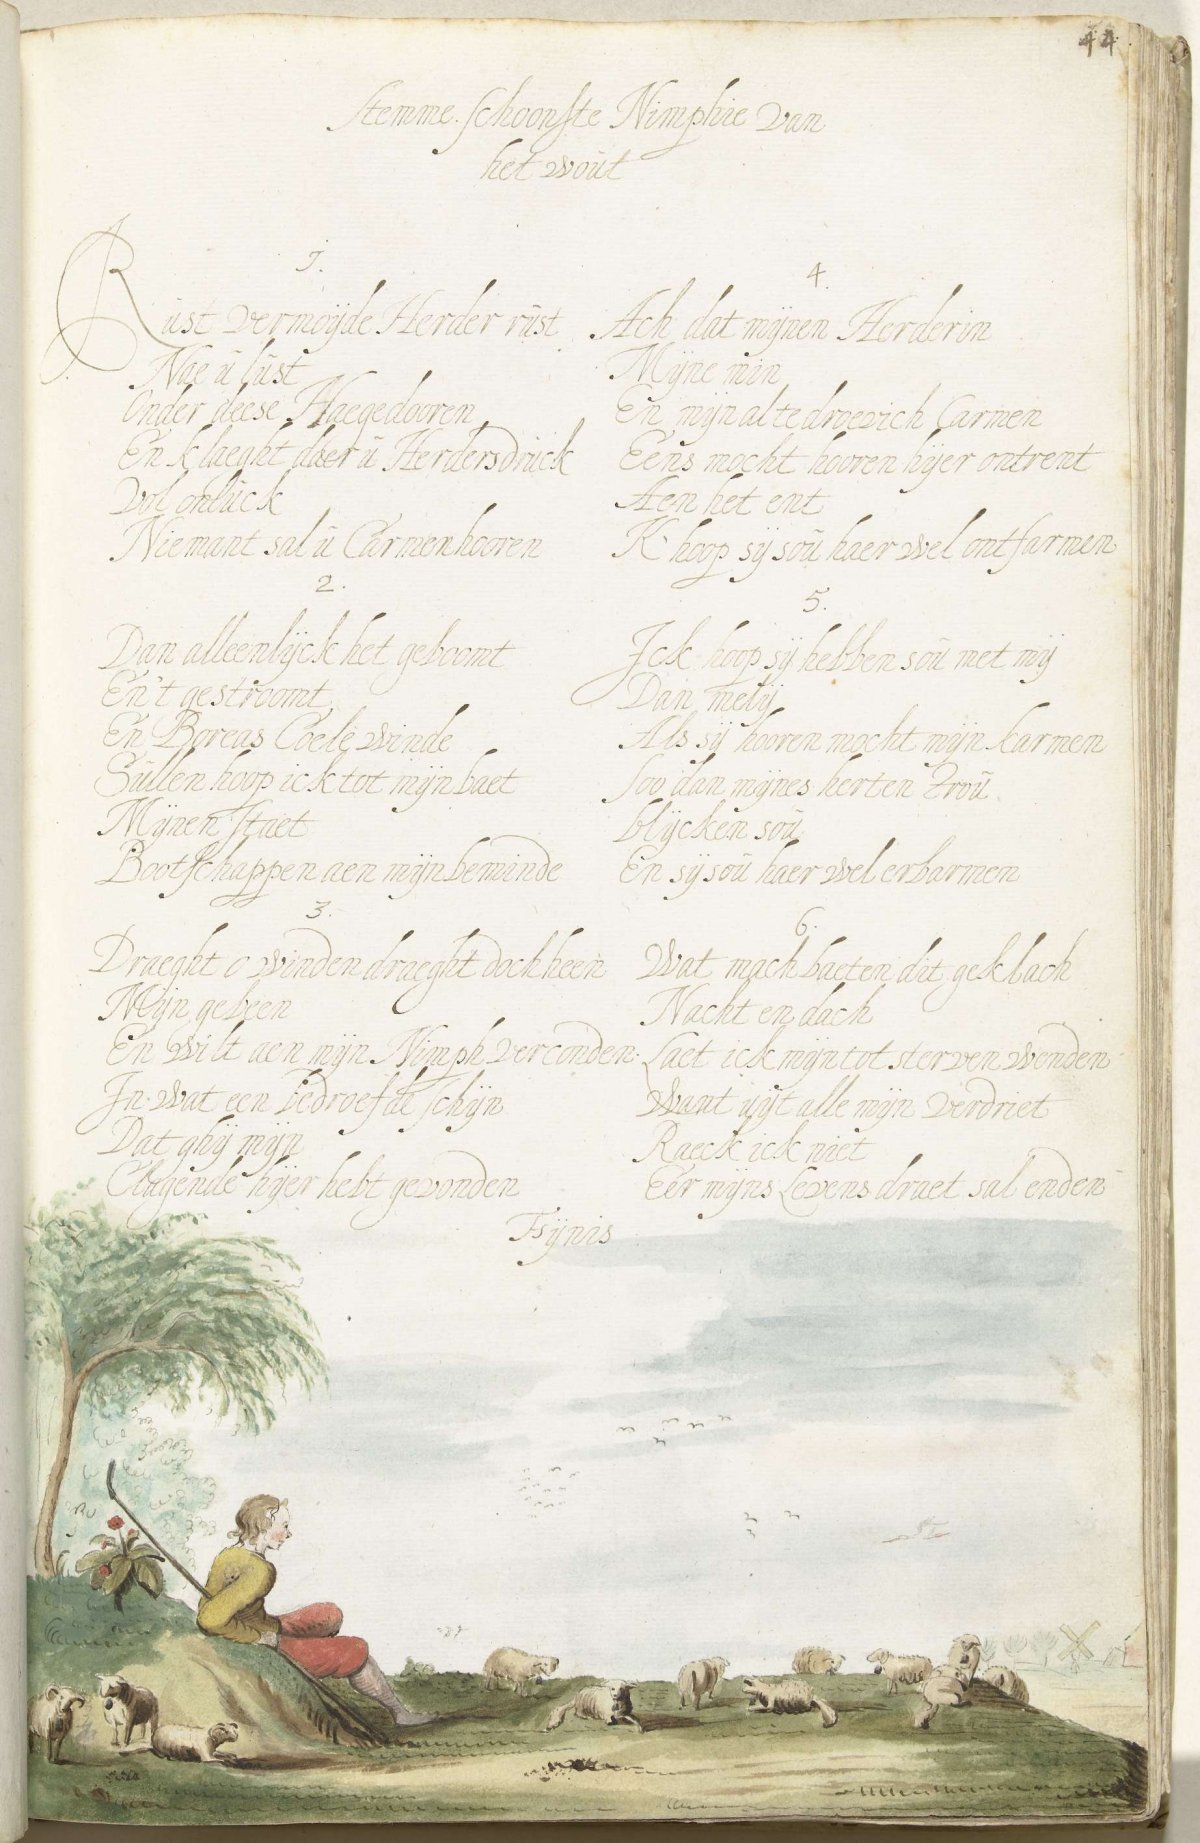 44
Stemme. schoonste Nimphie van
het woût
1.
Rûst vermoyde Herder rûst
Nae û lûst
Onder deese Haegedooren
En klaeght daer û Herdersdrûck
Vol onlûck
Niemant sal û Carmen hooren
2.
Dan alleenlijck het geboomt
En't gestroomt
En Boreas Coele winde
Sûllen hoop ick tot mijn baet
Mijnen staet
Bootschappen aen mijn beminde
3.
Draeght o winden draeght doch heen
Mijn geween
En wilt aen mijn Nimph verconden
In wat een bedroefde schijn
Dat ghij mijn
Clagende hijer hebt gevonden
4.
Ach dat mijnen Herderin
Mijne min
En mijn al te droevich Carmen
Eens mocht hooren hijer ontrent
Aen het ent
K' hoop sij soû haer wel ontfarmen
5.
Ick hoop sij hebben soû met mij
Dan melij
Als sij hooren mocht mijn karmen
soo dan mijnes herten trou
blijcken soû
En sij soû haer wel erbarmen
6.
Wat mach baeten dit geklach
Nacht en dach
Laet ick mijn tot sterven wenden
Want uijt alle mijn verdriet
Raeck ick niet
Eer mijns Levens draet sal enden
Fijnis